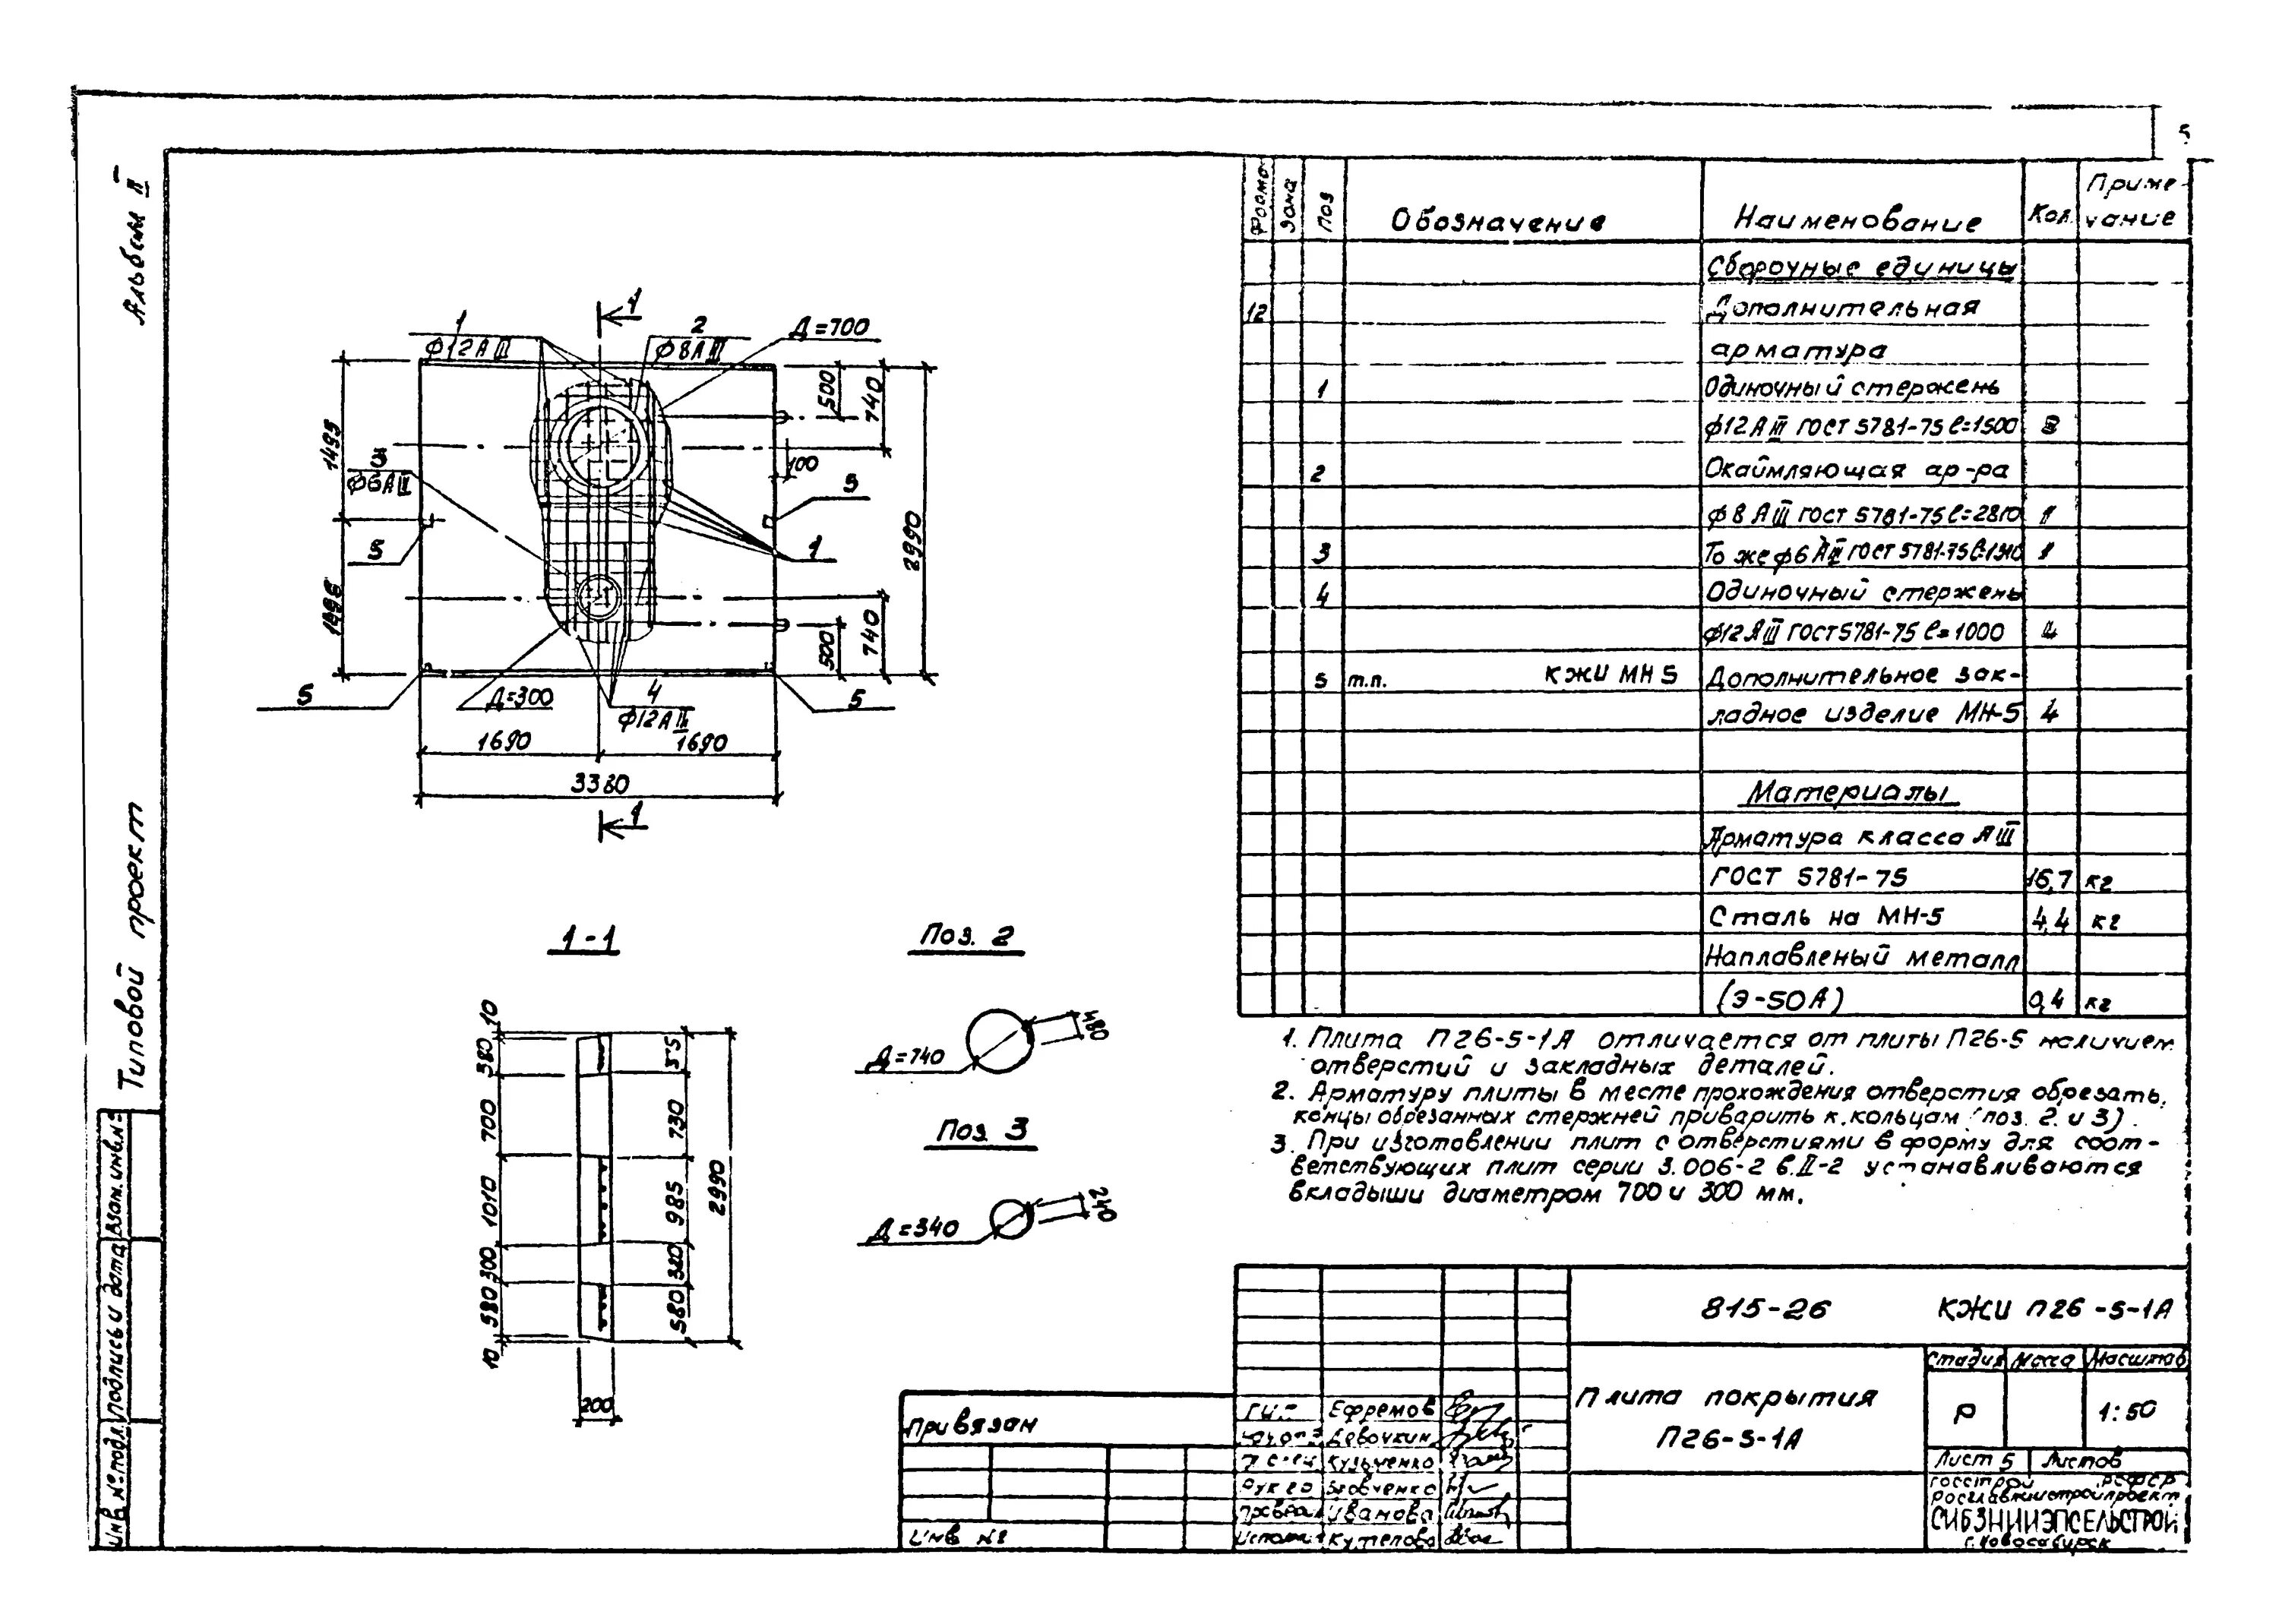 5
Альбом II
Типовой проект
Взам. инв. №
Подпись и дата
Инв. № подл.
1
1
Ф12АIII
2
Ф8АIII
Д=700
500
740
1495
3
Ф6АIII
100
5
5
1
2990
1495
500
740
5
Д=300
4
Ф12АIII
5
1690
1690
3380
1
1-1
10
380
700
1010
300
580
10
730
985
320
580
2990
200
Поз. 2
Д=740
480
Поз. 3
Д=340
240
Поз
Обозначение
Наименование
Кол.
Приме-
чание
Сборочные единицы
12 Дополнительная
арматура
1 Одиночный стержень
ф12АIII ГОСТ 5781-75 ℓ=1500
2 Окаймляющая ар-ра
ф8АIII ГОСТ 5781-75 ℓ=2810 1
3 То же ф6АIII ГОСТ 5781-75 1
4 Одиночный стержень
ф12АIII ГОСТ 5781-75 ℓ=1000 4
5 т.п. КЖИ МН5 Дополнительное зак-
ладное изделие МН-5 4
Материалы
Арматура класса АIII
ГОСТ 5781-75 16,7 кг
Сталь на МН-5 4,4 кг
Наплавленый металл
(Э-50А) 0,4 кг
1. Плита П26-5-1А отличается от плиты П26-5 наличием
отверстий и закладных деталей.
2. Арматуру плиты в месте прохождения отверстия обрезать,
концы обрезанных стержней приварить к кольцам (поз. 2 и 3).
3. При изготовлении плит с отверстиями в форму для соот-
ветствующих плит серии 3.006-2 в.II-2 устанавливаются
вкладыши диаметром 700 и 300 мм.
815-26 КЖИ П26-5-1А
Плита покрытия
П26-5-1А
Стадия Масса Масштаб
Р 1:50
Лист 5 Листов
Госстрой РСФСР
Росглавниистройпроект
СИБЗНИИЭПСЕЛЬСТРОЙ
г. Новосибирск
Привязан
Инв №
ГИП Ефремов
Девочкин
Кузьменко
Рук гр
Провер Иванова
Исполн Кутепова